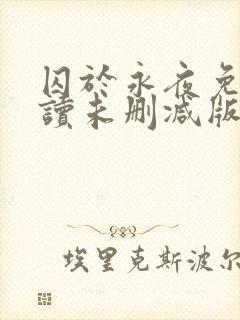 囚於永夜免
讀未刪減版
埃里克斯波尔